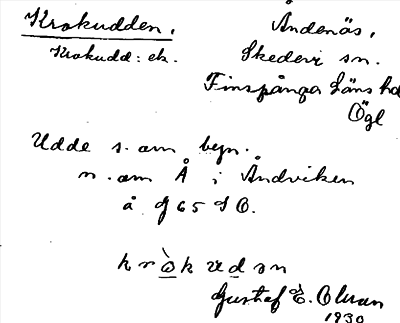 Krokudden. Åndenäs,
Krokudd: ek. Skedevi sn.
Finspånga Läns hd
Ögl
Udde s. om begn.
n. om Å i Åndviken
å J 65 SO.
kròkuden
Gustaf E. Olsson
1930